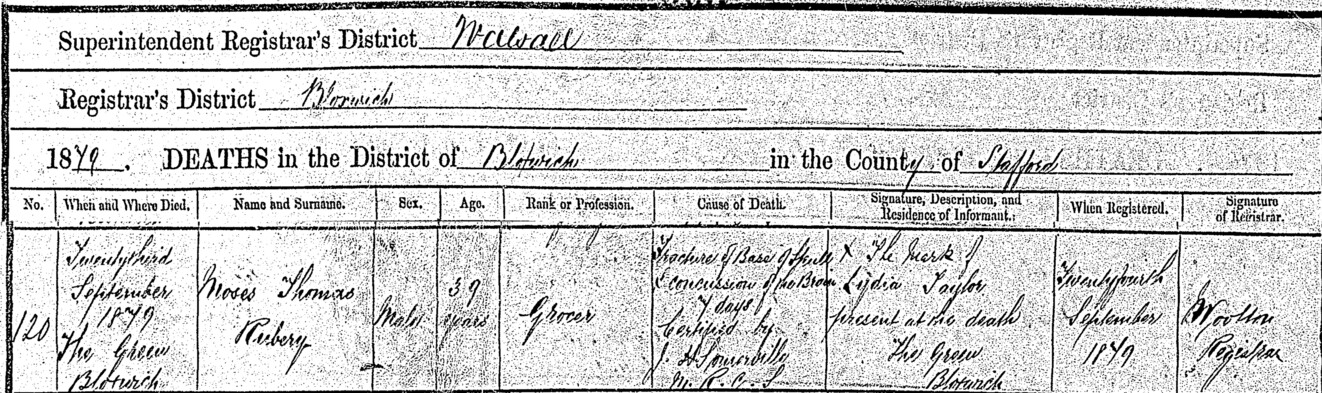 Superintendent Registrar's District Walsall
Registrar's District Bloxwich
1879. DEATHS in the District of Bloxwich in the County of Stafford
No. When and Where Died. Name and Surname. Sex. Age. Rank or Profession. Cause of Death. Signature, Description, and Residence of Informant. When Registered. Signature of Registrar.
120
Twentythird
September
1879
The Green
Bloxwich
Moses Thomas
Rubery
Male
39
years
Grocer
Fracture of Base of Skull
Concussion of the Brain
7 days
Certified by
J H Somerville
M. R. C. S
X The Mark of
Lydia Taylor
present at the death
The Green
Bloxwich
Twentyfourth
September
1879
Wootton
Registrar